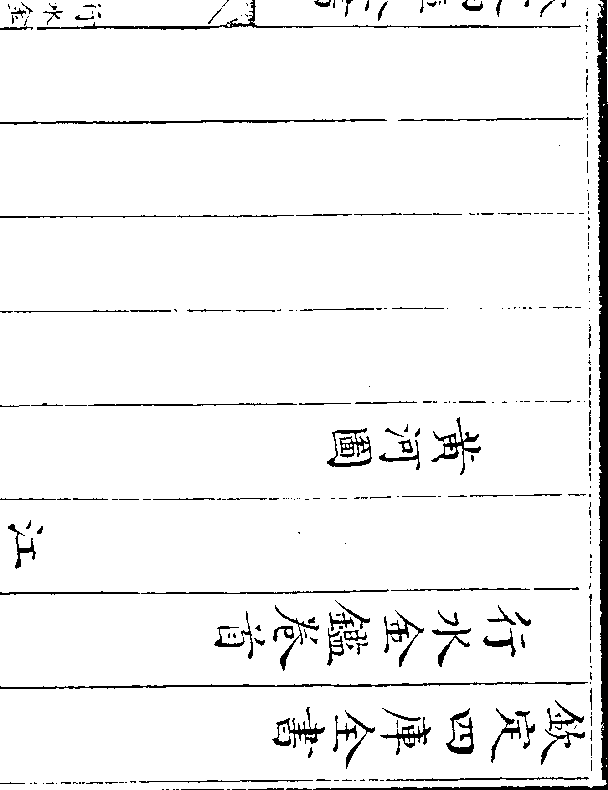 欽定四庫全書
行水金鑑卷首
江
黄河圖
行水金